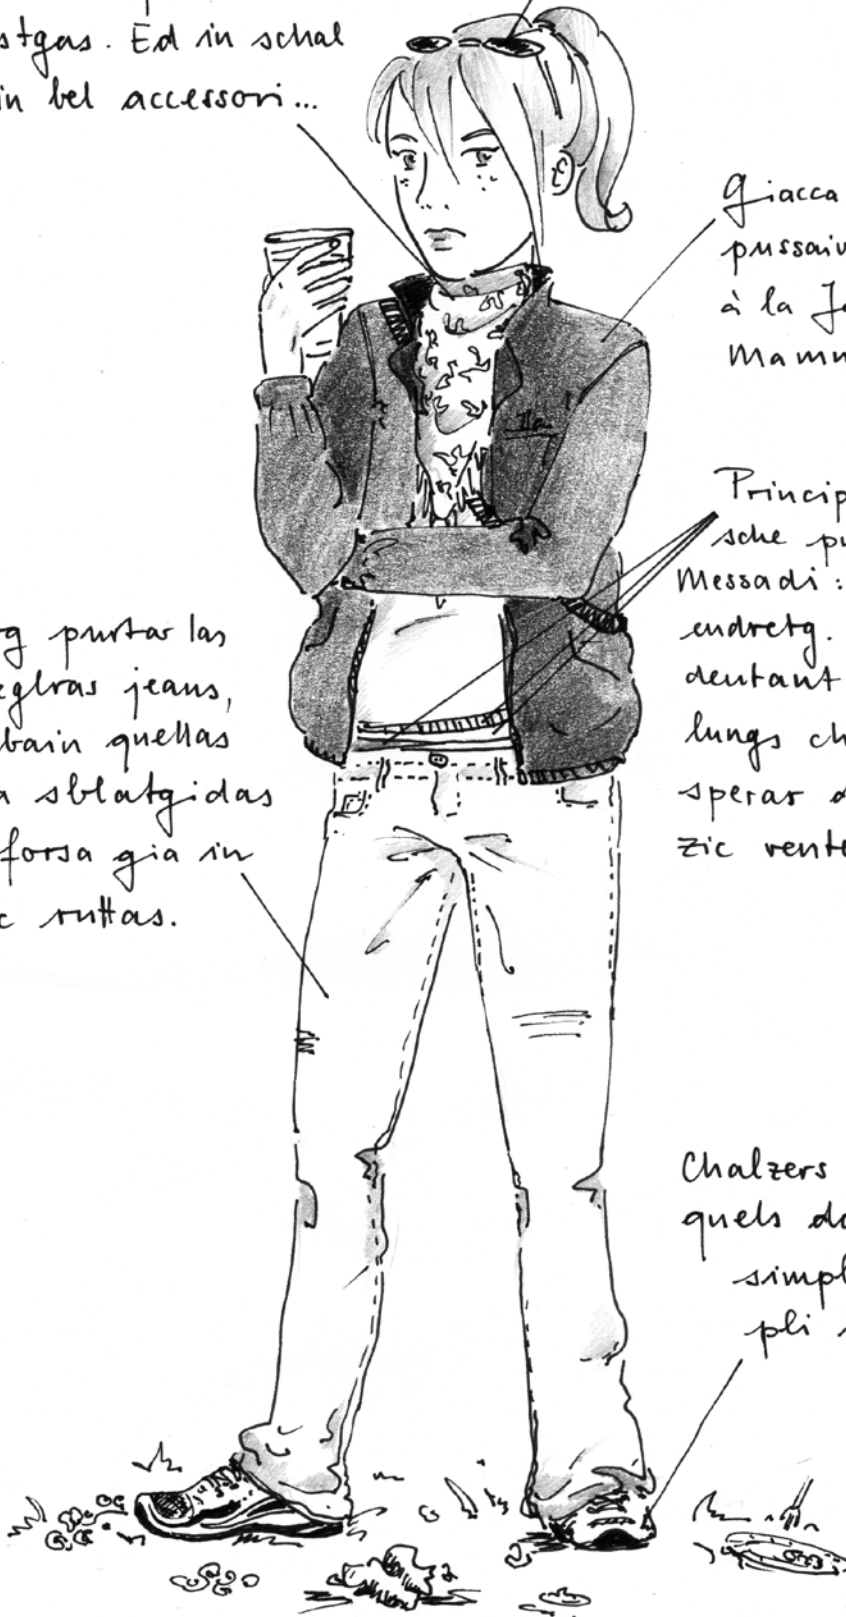 stgas. Ed in schal
in bel accessori...
Giacca
pussaiv
à la Ja
Mamm
Princip
sche pu
Messadi:
endretg.
dentant
lungs ch
sperar d
zic vente
g purtar las
eglras jeans,
bain quellas
a sblatgidas
forsa gia in
c ruttas.
Chalzers
quels da
simpl
pli s